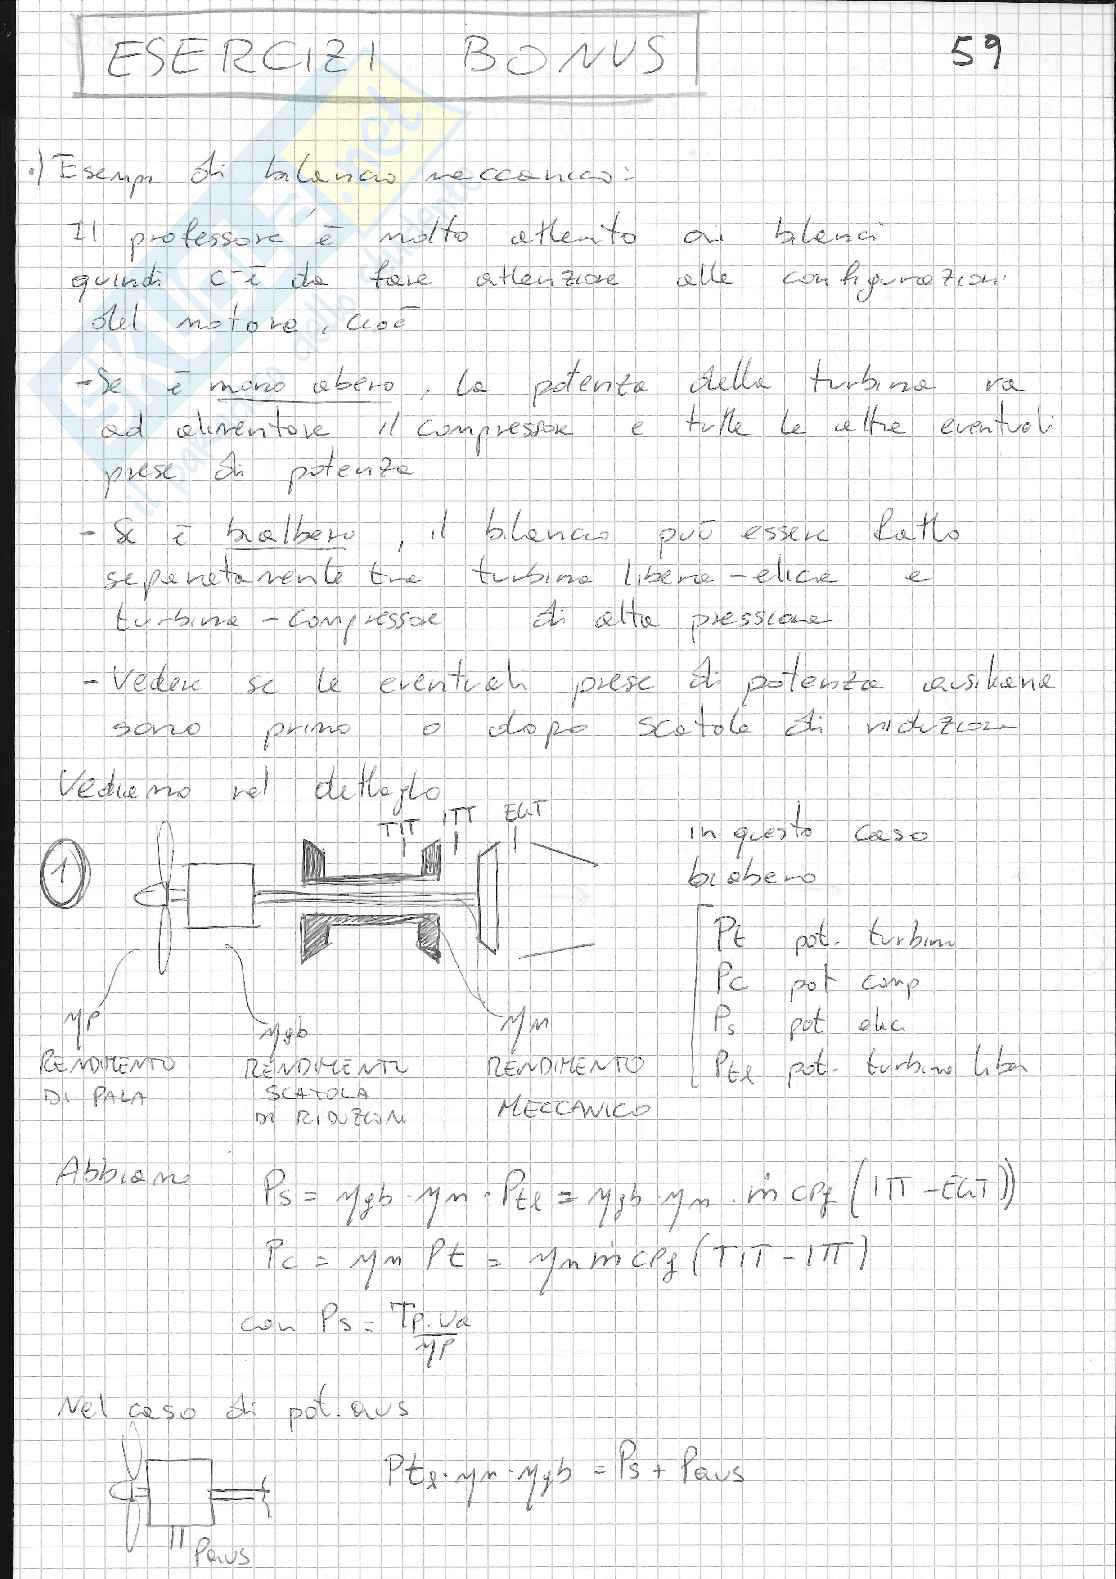 ESERCIZI BONUS
59
.) Esempi di bilancio meccanico:
Il professore è molto attento ai bilanci
quindi c'è da fare attenzione alle configurazioni
del motore, cioè
- Se è mono albero, la potenza della turbina va
ad alimentare il compressore e tutte le altre eventuali
prese di potenza
- Se è bialbero, il bilancio può essere fatto
separatamente tra turbina libera - elica e
turbina - compressore di alta pressione
- Vedere se le eventuali prese di potenza ausiliaria
sono prima o dopo scatola di riduzione
Vediamo nel dettaglio
1
TIT ITT EGT
in questo caso
bialbero
Pt pot. turbina
Pc pot comp
Ps pot elica
Ptl pot. turbina libera
ηp
RENDIMENTO
DI PALA
ηgb
RENDIMENTO
SCATOLA
DI RIDUZIONE
ηm
RENDIMENTO
MECCANICO
Abbiamo Ps = ηgb · ηm · Ptl = ηgb · ηm · ṁ cpg (ITT - EGT)
Pc = ηm Pt = ηm ṁ cpg (TIT - ITT)
con Ps = Tp · Va / ηp
Nel caso di pot. aus
Ptl · ηm · ηgb = Ps + Paus
Paus
SKUOLA.net